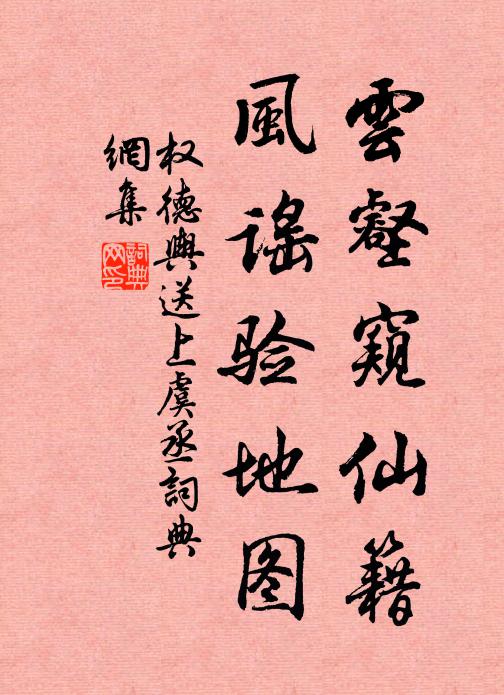 雲壑窺仙籍
風谣验地图
权德輿送上虞丞詞典
網集
詞典
网印